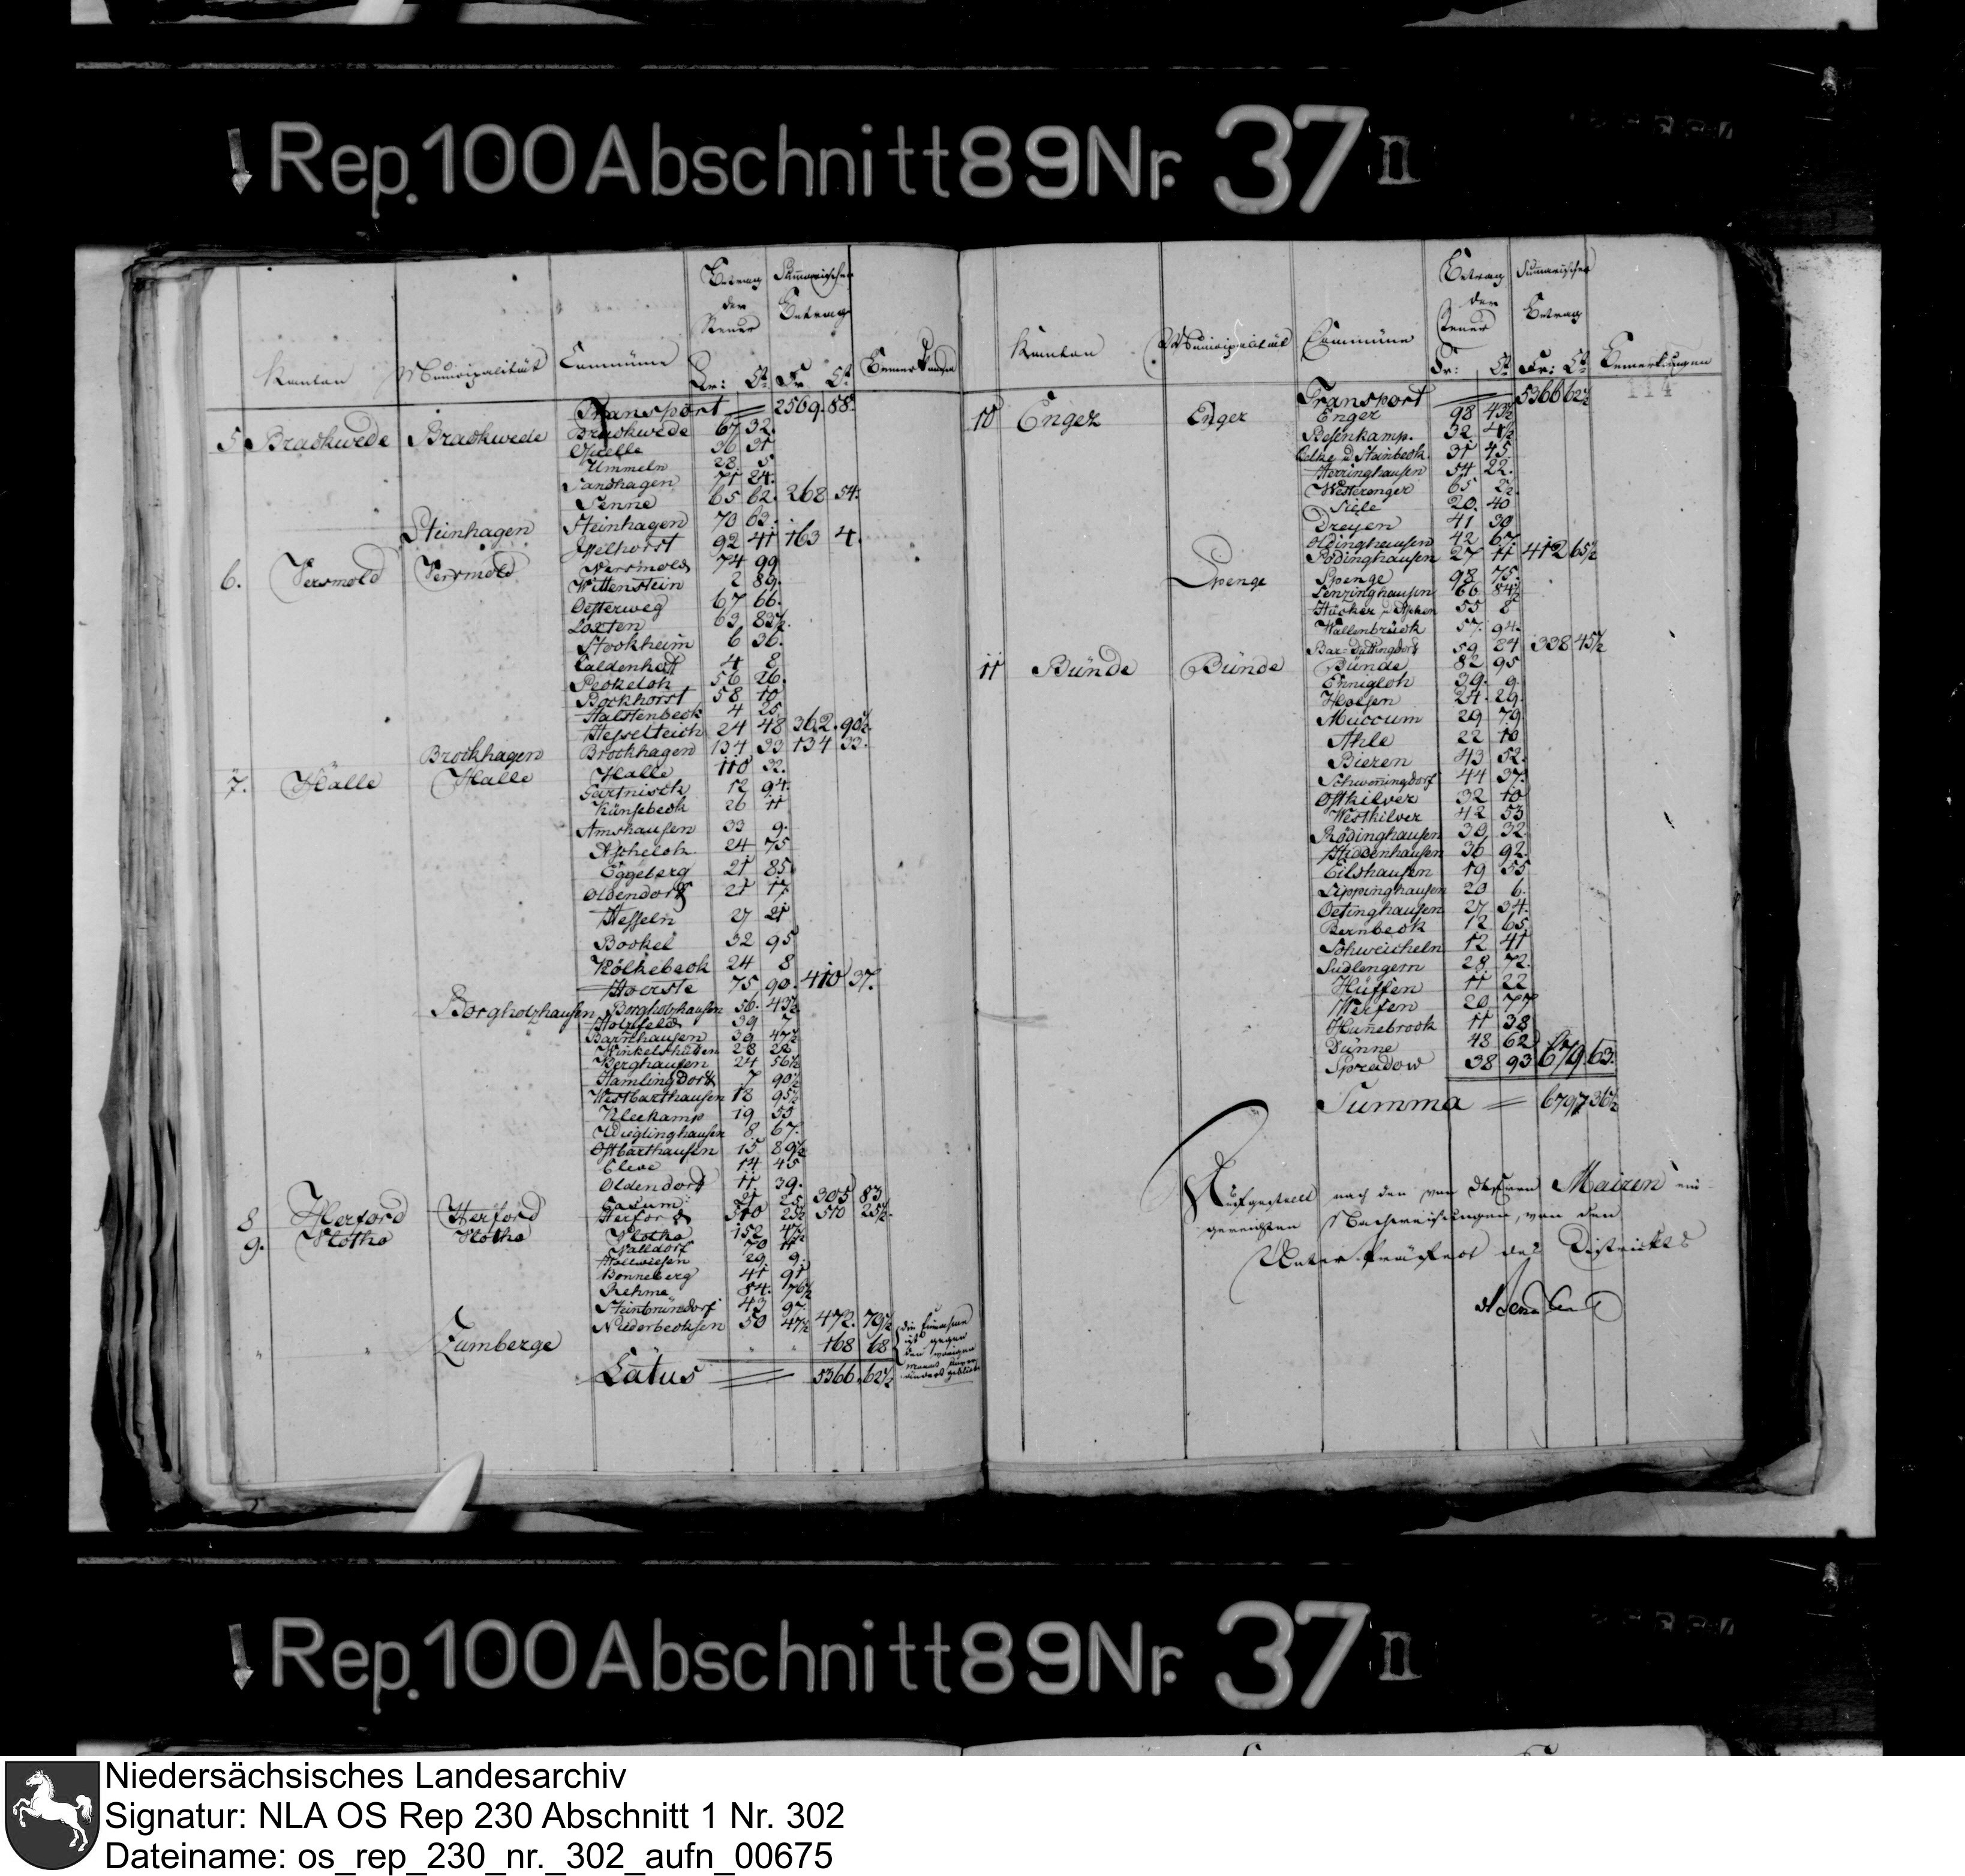 Rep. 100 Abschnitt 89 Nr. 37 II
Kanton Municipalität Commüne Betrag der Steuer Fr: Ct. Summarischer Betrag Fr. Ct. Bemerkungen
Transport = 2569. 88.
5 Brackwede Brackwede Brackwede 67 32.
Quelle 36 31
Ummeln 28 5
Sandhagen 71 24.
Senne 65 62. 268 54.
Steinhagen Steinhagen 70 63.
Isselhorst 92 41 163 4.
6. Versmold Versmold Versmold 74 99
Wittenstein 2 89.
Oesterweg 67 66.
Loxten 63 83½.
Stockheim 6 36.
Caldenhof 4 8
Peckeloh 56 26.
Bockhorst 58 10
Halstenbeck 4 25
Hesselteich 24 48 362. 90½.
Brockhagen Brockhagen 134 33 134 33.
7. Halle Halle Halle 110 32.
Gartnisch 12 94.
Künsebeck 26 11
Amshausen 33 9.
Ascheloh 24 75
Eggeberg 21 85
Oldendorf 21 17
Hesseln 27 21
Bockel 32 95
Kölkebeck 24 8
Hoerste 75 90. 410 37.
Borgholzhausen Borgholzhausen 56. 43½
Holtfeld 39 7
Barnhausen 39 47½
Winkelshütten 28 22
Berghausen 24 56½
Hamlingdorf 7 90½
Westbarthausen 18 95½
Kleekamp 19 55
Wieglinghausen 8 67.
Ostbarthausen 15 89½
Cleve 14 45
Oldendorf 11 39.
Casum 21 25 305 83
8 Herford Herford Herford 510 25½ 510 25½.
9. Vlotho Vlotho Vlotho 152 47½
Valldorf 70 11
Hollwiesen 29 9.
Bonneberg 41 91
Rehme 84. 76½
Steinbründorf 43 97.
Niederbecksen 50 47½ 472. 79½
Zumberge 168 68
die Einnahme ist gegen den vorigen
Latus = 5366. 62½
Kanton Municipalität Commüne Betrag der Steuer Fr: Ct. Summarischer Betrag Fr: Ct. Bemerkungen
114
Transport = 5366 62½
10 Enger Enger Enger 98 43½
Besenkamp. 32 4½
Oelke u Steinbeck 31 45
Herringhausen 54 22.
Westerenger 65 22.
Siele 20. 40
Dreyen 41 30
Oldinghausen 42 67.
Pödinghausen 27 11 412 65½
Spenge Spenge 98 75.
Lenzinghausen 66 84½
Hücker u Aschen 55 8
Wallenbrück 57. 94.
Bar-Düttingdorf 59 84 338 45½
11 Bünde Bünde Bünde 82 95
Ennigloh 39. 9.
Holsen 24. 29.
Muccum 29 79.
Ahle 22 10
Bieren 43 52.
Schweningdorf 44 37.
Ostkilver 32 10
Westkilver 42 53
Rödinghausen 30 32
Hiddenhausen 36 92
Eilshausen 19 55
Lippinghausen 20 6.
Oetinghausen 27 34.
Bernbeck 12 65
Schweicheln 12 41
Südlengern 28 72.
Hüffen 11 22
Werfen 20 77
Hunebrock 11 38
Dünne 48 62
Spradow 38 93 679. 63.
Summa = 6797 36½
Aufgestellt nach den von den Herren Mairen ein-
gereichten Nachweisungen, von dem
Unter-Präfect des Districkts
Rep. 100 Abschnitt 89 Nr. 37 II
Niedersächsisches Landesarchiv
Signatur: NLA OS Rep 230 Abschnitt 1 Nr. 302
Dateiname: os_rep_230_nr._302_aufn_00675